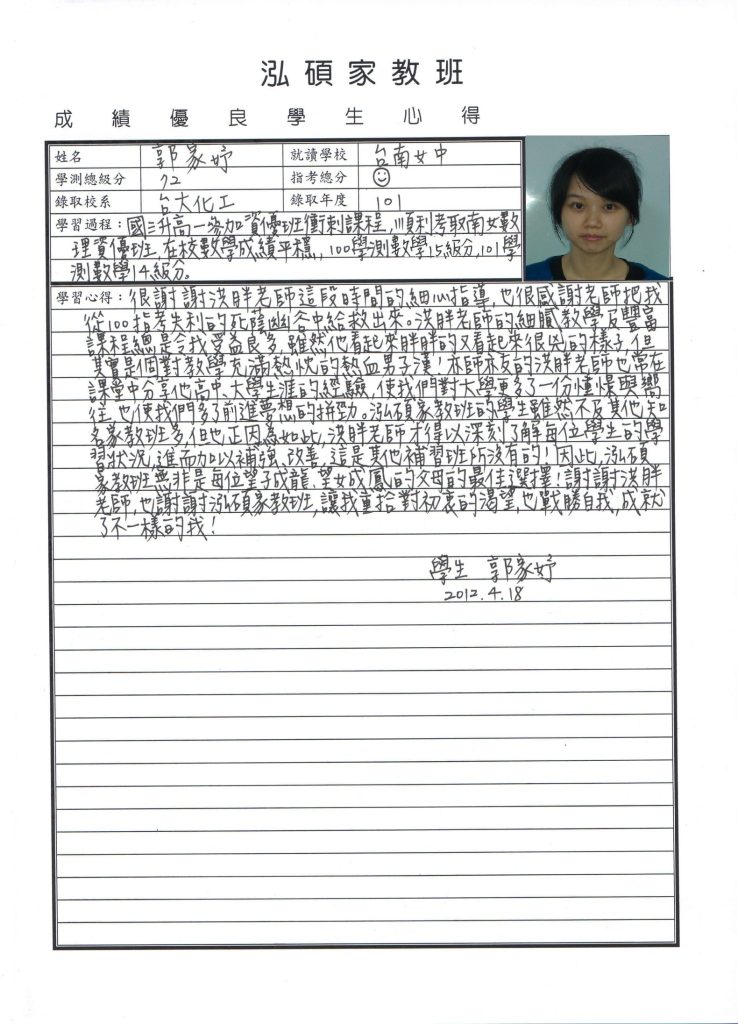 泓碩家教班
成績優良學生心得
姓名 郭家妤 就讀學校 台南女中
學測總級分 72 指考總分 ☺
錄取校系 台大化工 錄取年度 101
學習過程：國三升高一參加資優班衝刺課程，順利考取南女數
理資優班，在校數學成績平穩，100學測數學15級分，101學
測數學14級分。
學習心得：很謝謝洪胖老師這段時間的細心指導，也很感謝老師把我
從100指考失利的死蔭幽谷中給救出來。洪胖老師的細膩教學及豐富
課程總是令我受益良多，雖然他看起來胖胖的又看起來很凶的樣子，但
其實是個對教學充滿熱忱的熱血男子漢！亦師亦友的洪胖老師也常在
課堂中分享他高中、大學生涯的經驗，使我們對大學更多了一份憧憬與嚮
往，也使我們多了前進夢想的拼勁。泓碩家教班的學生雖然不及其他知
名家教班多，但也正因為如此，洪胖老師才得以深刻了解每位學生的學
習狀況，進而加以補強、改善，這是其他補習班所沒有的！因此，泓碩
家教班無非是每位望子成龍、望女成鳳的父母的最佳選擇！謝謝洪胖
老師，也謝謝泓碩家教班，讓我重拾對初衷的渴望也戰勝自我，成就
了不一樣的我！
學生 郭家妤
2012.4.18